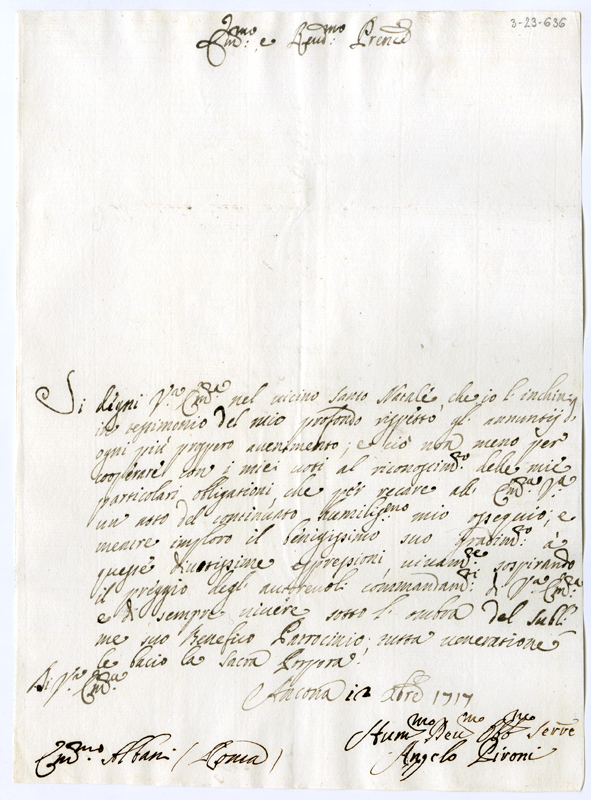 3-23-636
Em.mo e Reud.mo Prencē
Si degni V.ra Em.za nel uicino Santo Natale, che io l'inchino
in testimonio del mio profondo rispetto, gl'annuntij
ogni più prospero auenimento; e ciò non meno per
cooperare con i miei uoti al riconoscim.to delle mie
particolari obligationi, che per recare all' Em.za V.ra
un atto del continuato humiliss.mo mio ossequio; e
mentre imploro il benignissimo suo gradim.to à
queste diuotissime espressioni uiuam.te sospirando
il preggio degl'autoreuoli commandam.ti di V.ra Em.za
e di sempre uiuere sotto l'ombra del subli-
me suo Benefico Patrocinio, tutta ueneratione
le bacio la Sacra Porpora.
Di V.ra Em.za
Ancona 12 Xbre 1717
Hum.mo Deu.mo Obb.mo Serūe
Em.mo Albani (Roma)
Angelo Pironi